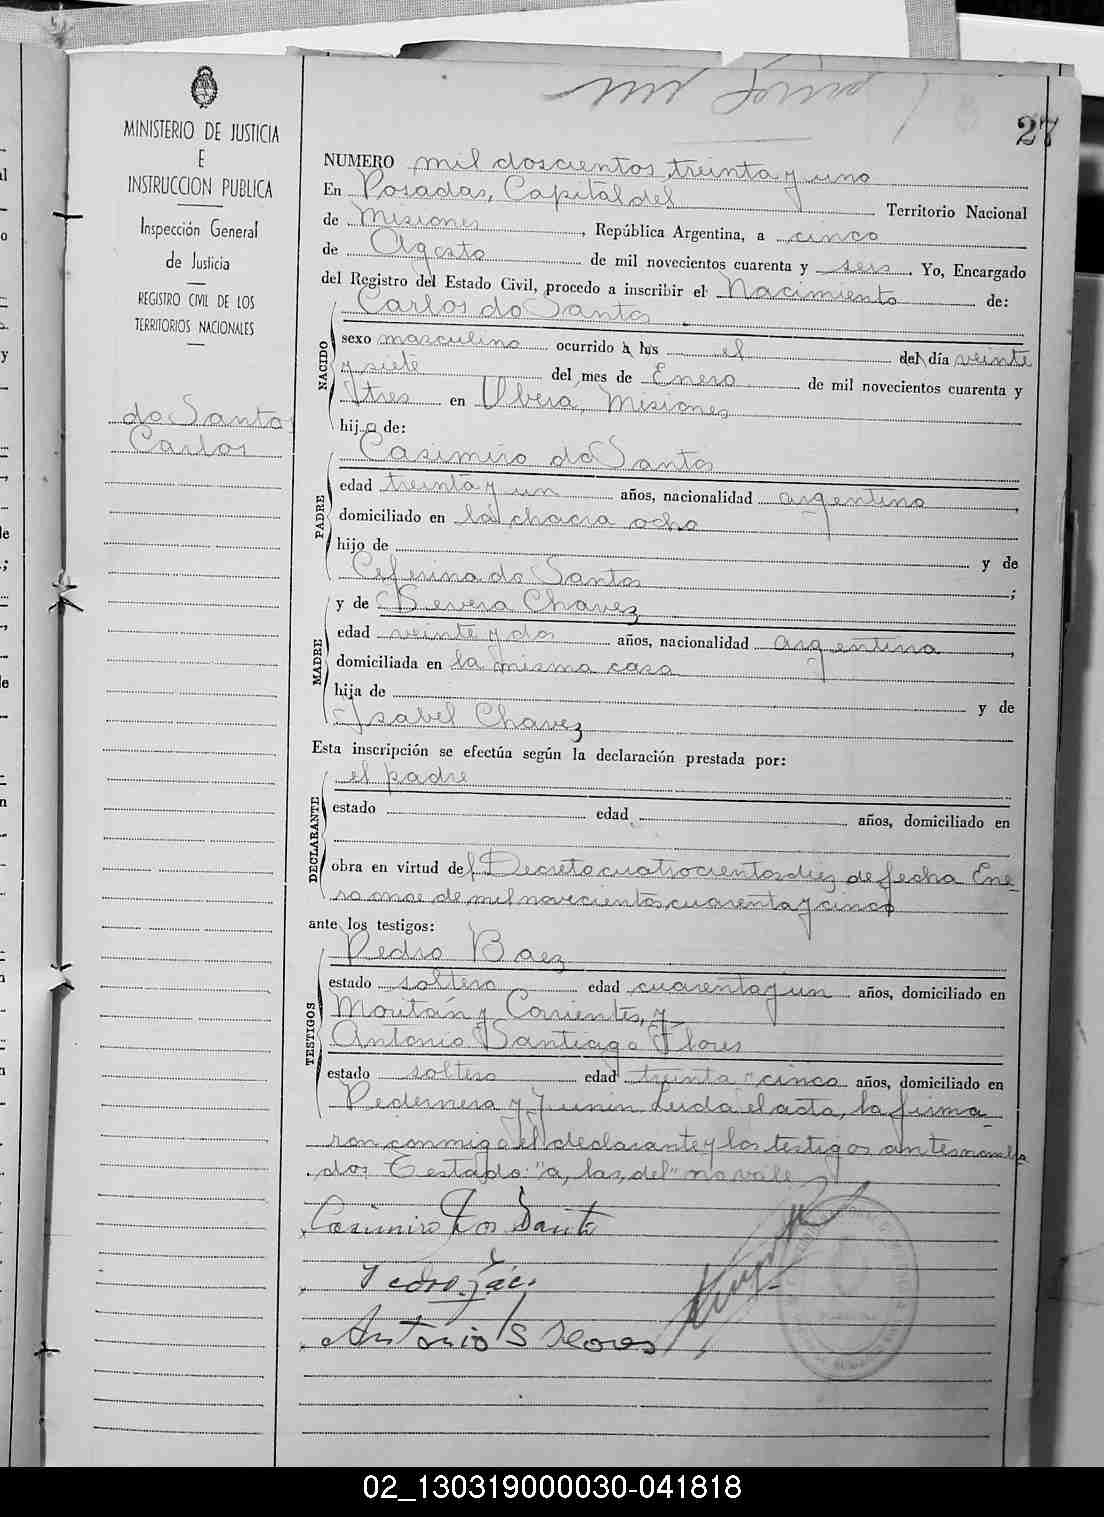 27
MINISTERIO DE JUSTICIA
E
INSTRUCCION PUBLICA
Inspección General
de Justicia
REGISTRO CIVIL DE LOS
TERRITORIOS NACIONALES
do Santos
Carlos
NUMERO mil doscientos treinta y uno
En Posadas, Capital del Territorio Nacional
de Misiones, República Argentina, a cinco
de Agosto de mil novecientos cuarenta y seis. Yo, Encargado
del Registro del Estado Civil, procedo a inscribir el Nacimiento de:
NACIDO
Carlos do Santos
sexo masculino ocurrido a las el del día veinte
y siete del mes de Enero de mil novecientos cuarenta y
tres en Obera, Misiones
hijo de:
PADRE
Casimiro do Santos
edad treinta y un años, nacionalidad argentino,
domiciliado en la chacra ocho
hijo de y de
Ceferina do Santos;
MADRE
y de Severa Chavez
edad veinte y dos años, nacionalidad argentina,
domiciliada en la misma casa
hija de y de
Isabel Chavez
Esta inscripción se efectúa según la declaración prestada por:
DECLARANTE
el padre
estado edad años, domiciliado en
obra en virtud del Decreto cuatrocientos diez de fecha Ene-
ro once de mil novecientos cuarenta y cinco
ante los testigos:
TESTIGOS
Pedro Baez
estado soltero edad cuarenta y un años, domiciliado en
Moritán y Corrientes, y
Antonio Santiago Flores
estado soltero edad treinta y cinco años, domiciliado en
Pedernera y Junin Leida el acta, la firma-
ron conmigo el declarante y los testigos antesnombra
dos Testado: "a, las, del" no vale
Casimiro Dos Santo
Pedro Báez
Antonio S Flores
02_130319000030-041818